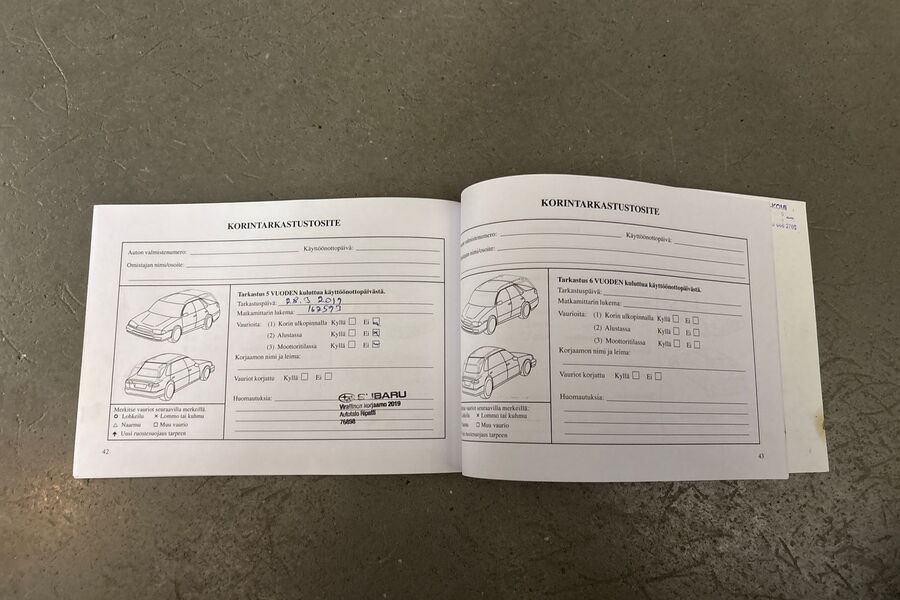 KORINTARKASTUSTOSITE
Auton valmistenumero: Käyttöönottopäivä:
Omistajan nimi/osoite:
Tarkastus 5 VUODEN kuluttua käyttöönottopäivästä.
Tarkastuspäivä: 28.3 2019
Matkamittarin lukema: 162593
Vaurioita: (1) Korin ulkopinnalla Kyllä Ei
(2) Alustassa Kyllä Ei
(3) Moottoritilassa Kyllä Ei
Korjaamon nimi ja leima:
Vauriot korjattu Kyllä Ei
Huomautuksia:
SUBARU
Virallinen korjaamo 2019
Autotalo
76898
Merkitse vauriot seuraavilla merkeillä.
Lohkeilu × Lommo tai kuhmu
△ Naarmu □ Muu vaurio
Uusi ruostesuojaus tarpeen
42
KORINTARKASTUSTOSITE
Auton valmistenumero: Käyttöönottopäivä:
nimi/osoite:
Tarkastus 6 VUODEN kuluttua käyttöönottopäivästä.
Tarkastuspäivä:
Matkamittarin lukema:
Vaurioita: (1) Korin ulkopinnalla Kyllä Ei
(2) Alustassa Kyllä Ei
(3) Moottoritilassa Kyllä Ei
Korjaamon nimi ja leima:
Vauriot korjattu Kyllä Ei
Huomautuksia:
vauriot seuraavilla merkeillä.
× Lommo tai kuhmu
□ Muu vaurio
ruostesuojaus tarpeen
43